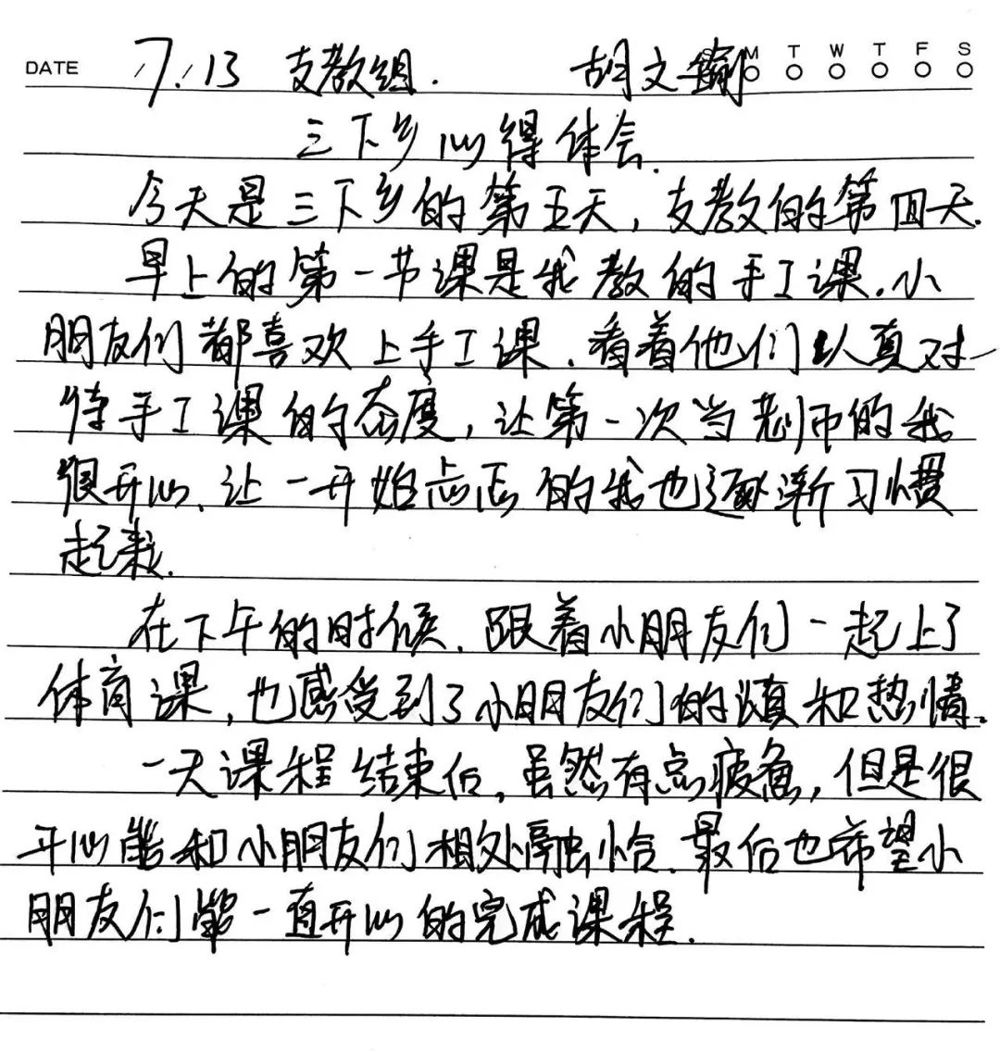 DATE 7.13 支教组. 胡文 M T W T F S
三下乡心得体会.
今天是三下乡的第五天,支教的第四天.
早上的第一节课是我教的手工课.小
朋友们都喜欢上手工课.看着他们认真对
待手工课的态度,让第一次当老师的我
很开心.让一开始忐忑的我也逐渐习惯
起来.
在下午的时候.跟着小朋友们一起上了
体育课,也感受到了小朋友们的认真和热情.
一天课程结束后,虽然有点疲惫,但是很
开心能和小朋友们相处融恰.最后也希望小
朋友们能一直开心的完成课程.